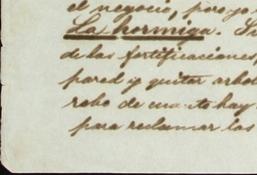 el negocio, pero yo
La hormiga. Si
de las fortificaciones,
pared y quitar arbol
robo de cuanto hay
para reclamar las